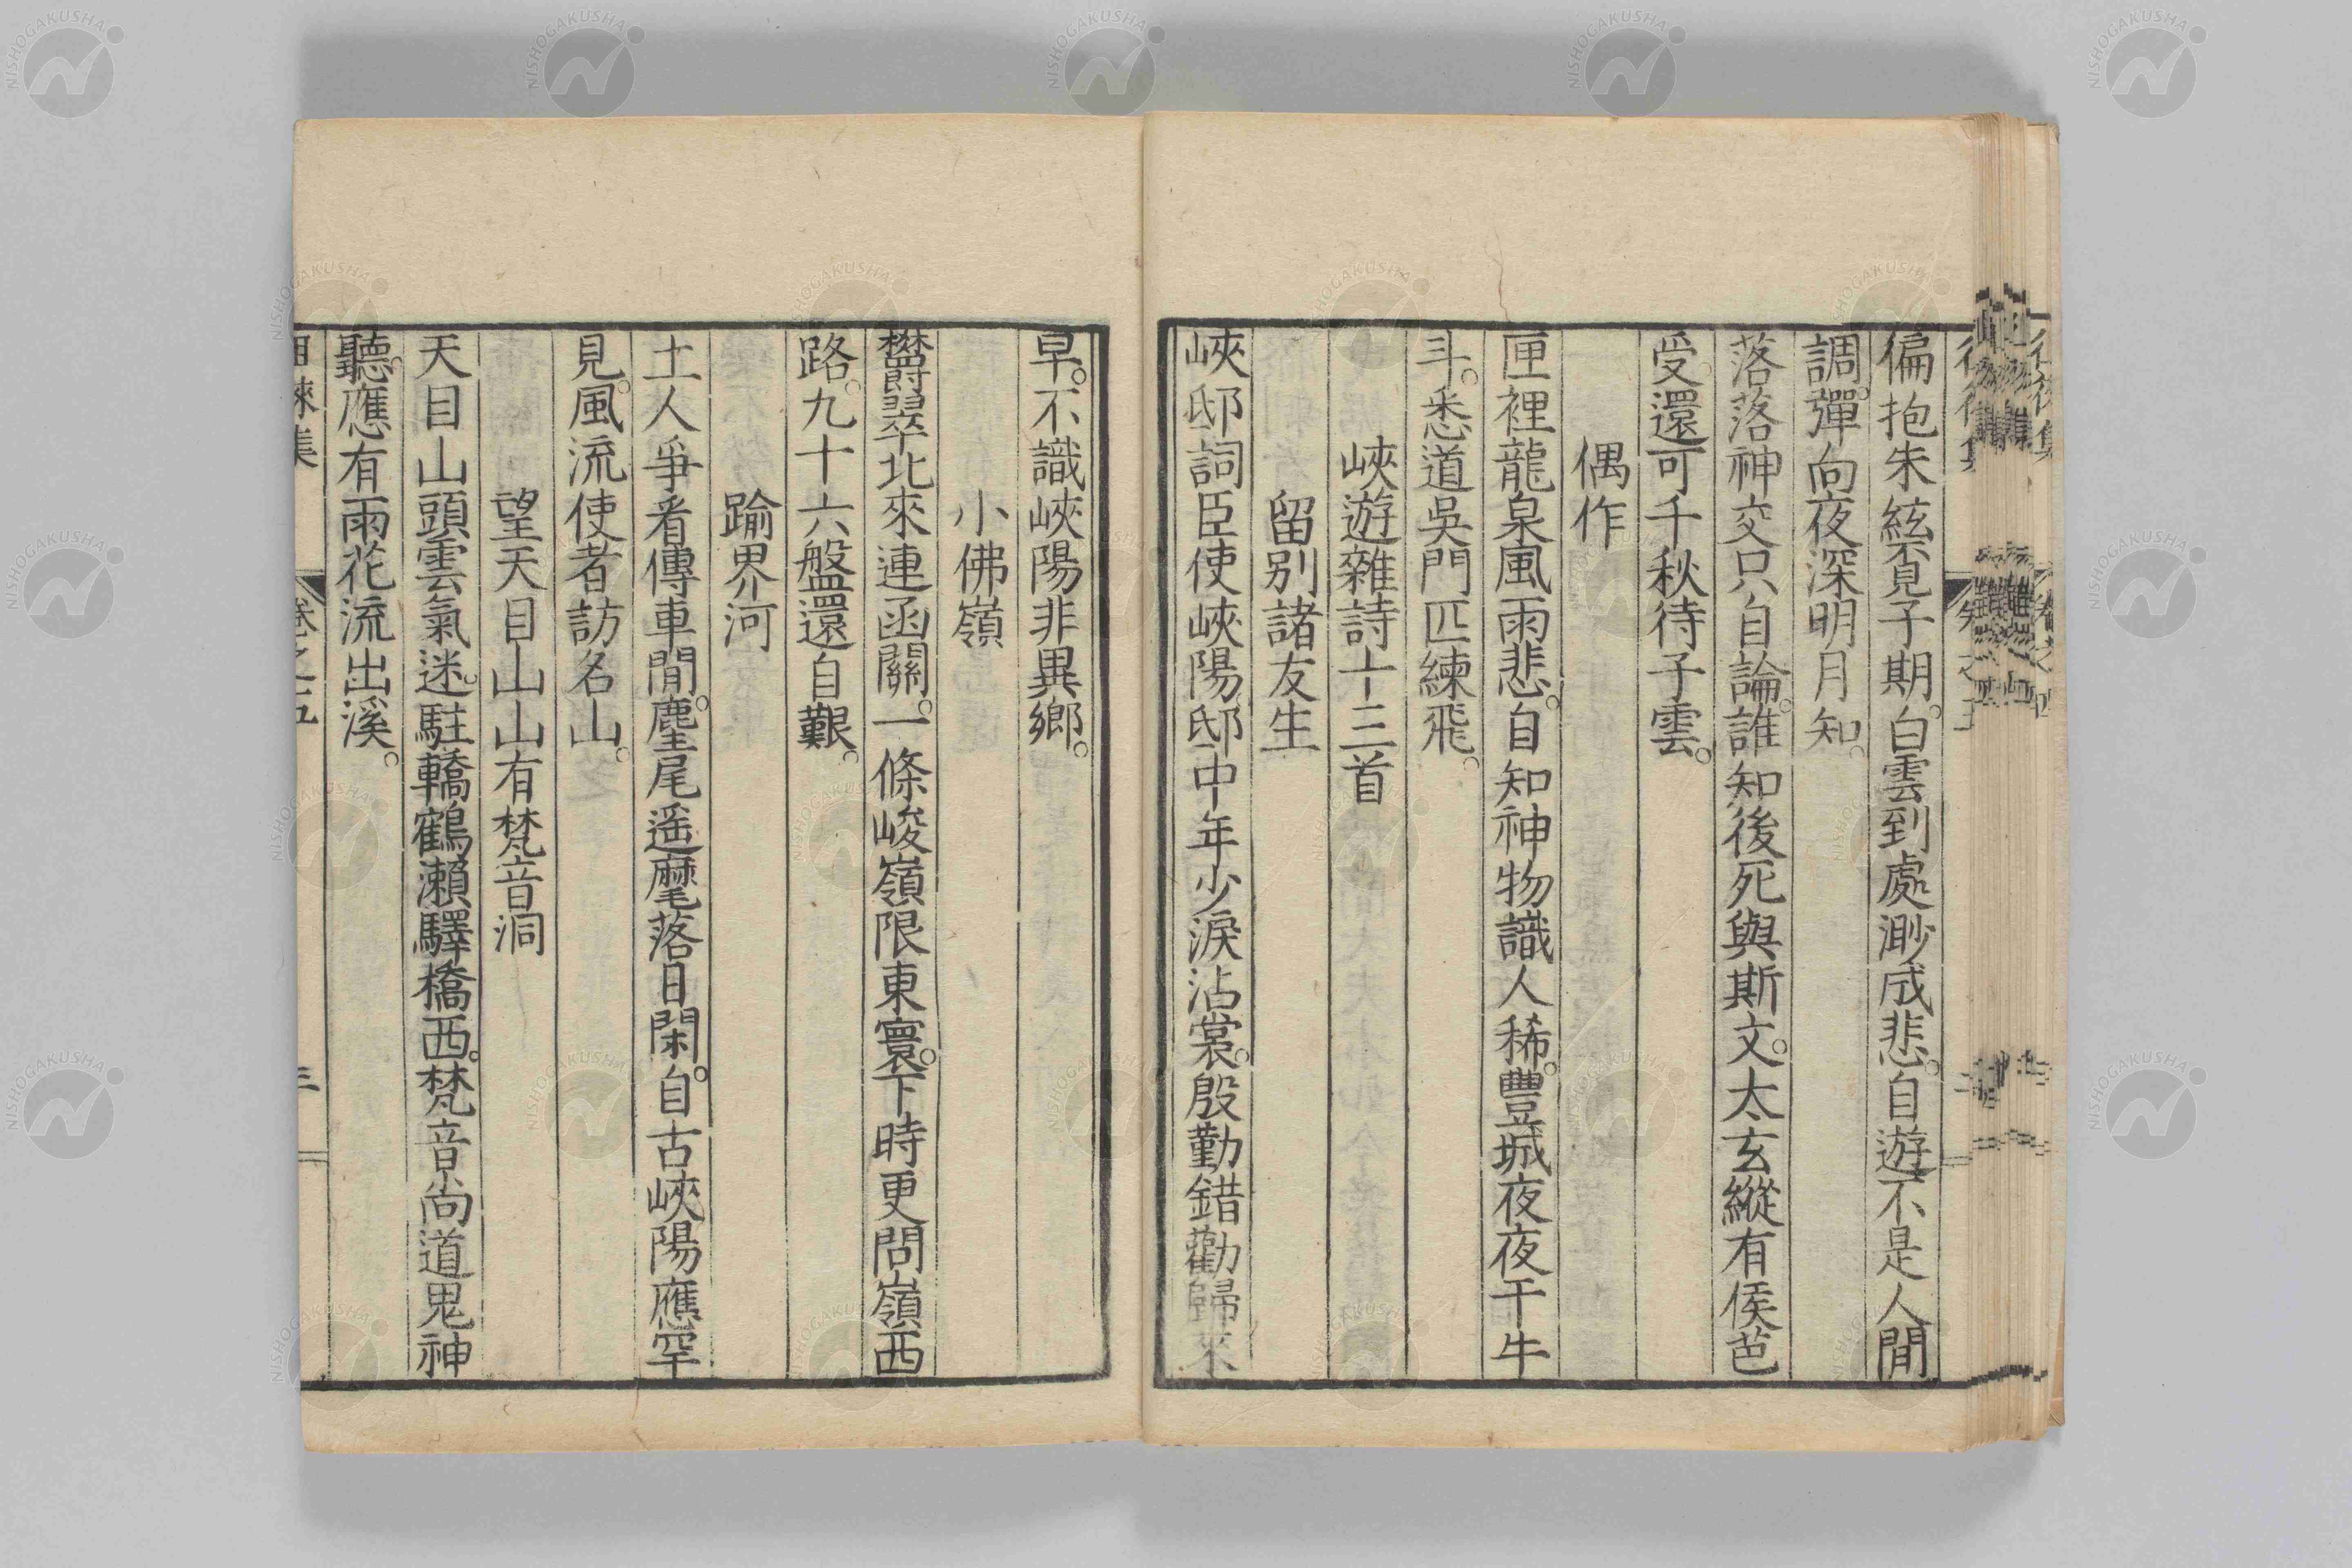 偏抱朱絃覔子期。白雲到處渺成悲。自遊不是人間
調。彈向夜深明月知。
落落神交只自論。誰知後死與斯文。太玄縱有侯芭
受。還可千秋待子雲。
偶作
匣裡龍泉風雨悲。自知神物識人稀。豐城夜夜干牛
斗。悉道吳門匹練飛。
峽遊雜詩十三首
留別諸友生
峽邸詞臣使峽陽。邸中年少淚沾裳。殷勤錯勸歸來
早。不識峽陽非異鄉。
小佛嶺
欝翠北來連函關。一條峻嶺限東寰。下時更問嶺西
路。九十六盤還自艱。
踰界河
土人爭看傳車間。麈尾遥麾落日閑。自古峽陽應罕
見。風流使者訪名山。
望天目山山有梵音洞
天目山頭雲氣迷。駐轎鶴瀨驛橋西。梵音尚道鬼神
聽。應有雨花流出溪。
卷之五
三